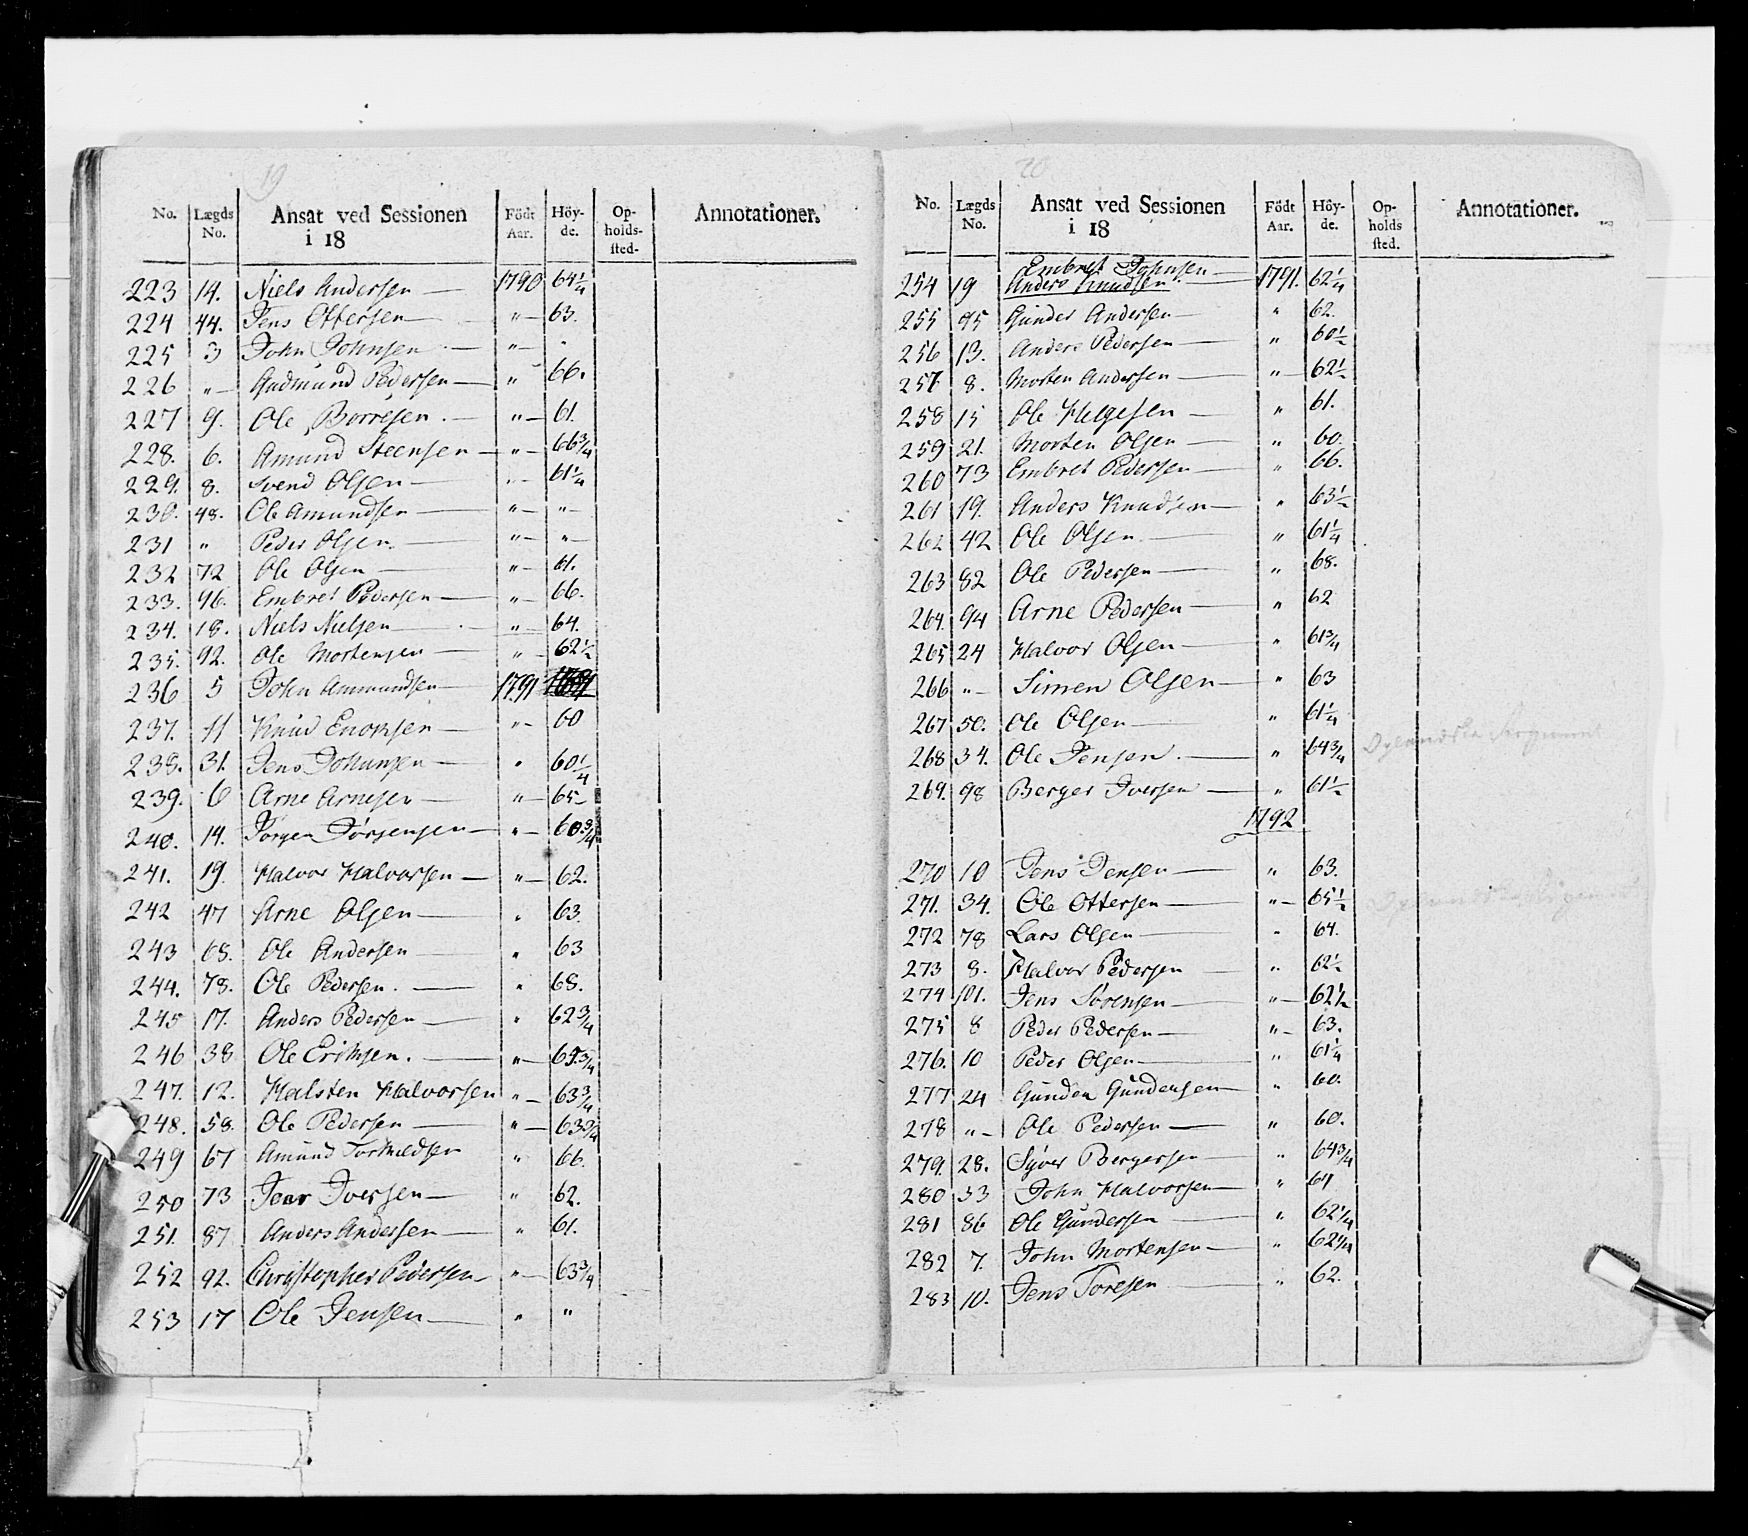 19
No. Lægds No. Ansat ved Sessionen i 18 Födt Aar. Höy-de. Op-holds-sted- Annotationer.
223 14. Niels Andersen — 1790 64¼
224 44. Jens Ottersen — " — 63.
225 3 John Johnsen — " — "
226 " — Gudmund Pedersen — " 66.
227 9. Ole Borresen. — " — 61.
228. 6. Amund Steensen — " — 66¾
229. 8. Svend Olsen — " — 61¼
230. 48. Ole Amundsen — " — " —
231 " Peder Olsen. — " — " —
232 72 Ole Olsen — " — 61.
233. 46. Embret Pedersen — " — 66.
234. 18. Niels Nielsen — " — 64.
235. 92. Ole Mortensen — " — 62½
236 5 John Ammundsen — 1791
237. 11 Knud Enoksen — " — 60
238. 31. Jens Johansen — " 60¼
239. 6 Arne Arnesen — " — 65 —
240. 14. Jörgen Jörgensen — " — 60¾
241. 19. Halvor Halvorsen — " — 62.
242 47 Arne Olsen — " 63.
243 68. Ole Andersen — " 63
244. 78. Ole Pedersen. — " 68.
245 17. Anders Pedersen — " 62¾
246 38 Ole Eriksen. — " —
247. 12. Halsten Halvorsen " — 63¾
248. 58. Ole Pedersen — " — 63¾
249 67 Amund Torkildsen " 66.
250 73 Iver Iversen — " 62.
251. 87 Anders Andersen — " 61.
252 92. Christopher Pedersen — " — 63¾
253 17 Ole Jensen — " "
20
No. Lægds No. Ansat ved Sessionen i 18 Födt Aar. Höy-de. Op-holds sted. Annotationer.
Embret Johnsen —
254 19 Anders Knudsen — 1791. 62¼
255 95 Gunder Andersen — " 62.
256 13. Anders Pedersen — " 60½
257 8. Morten Andersen — " — 62½
258 15 Ole Helgesen — " 61.
259 21. Morten Olsen — " 60.
260 73 Embret Pedersen — " 66.
261 19. Anders Knudsen — " 63½
262 42 Ole Olsen — " 61¼
263 82 Ole Pedersen — " 68.
264. 94 Arne Pedersen — " 62
265 24 Halvor Olsen — " 61¾
266 " — Simen Olsen — " 63
267 50. Ole Olsen — " 61¼
268 34. Ole Jensen. — " 64¾
269. 98 Berger Iversen — " 61½
1792
270 10 Jens Jensen — " 63.
271. 34. Ole Ottersen — " — 65½
272 78 Lars Olsen — " 64.
273 8. Halvor Pedersen — " 62½
274 101. Jens Sörensen — " — 62½
275 8 Peder Pedersen — " — 63.
276. 10 Peder Olsen — " 61¼
277 24 Gunder Gundersen — " 60.
278 " — Ole Pedersen — " 60.
279. 28. Syver Bergersen — " 64¾
280 53 John Halvorsen — " 64
281 86 Ole Gundersen — " 62¼
282 7. John Mortensen — " 62¼
283 10. Jens Toresen — " 62.